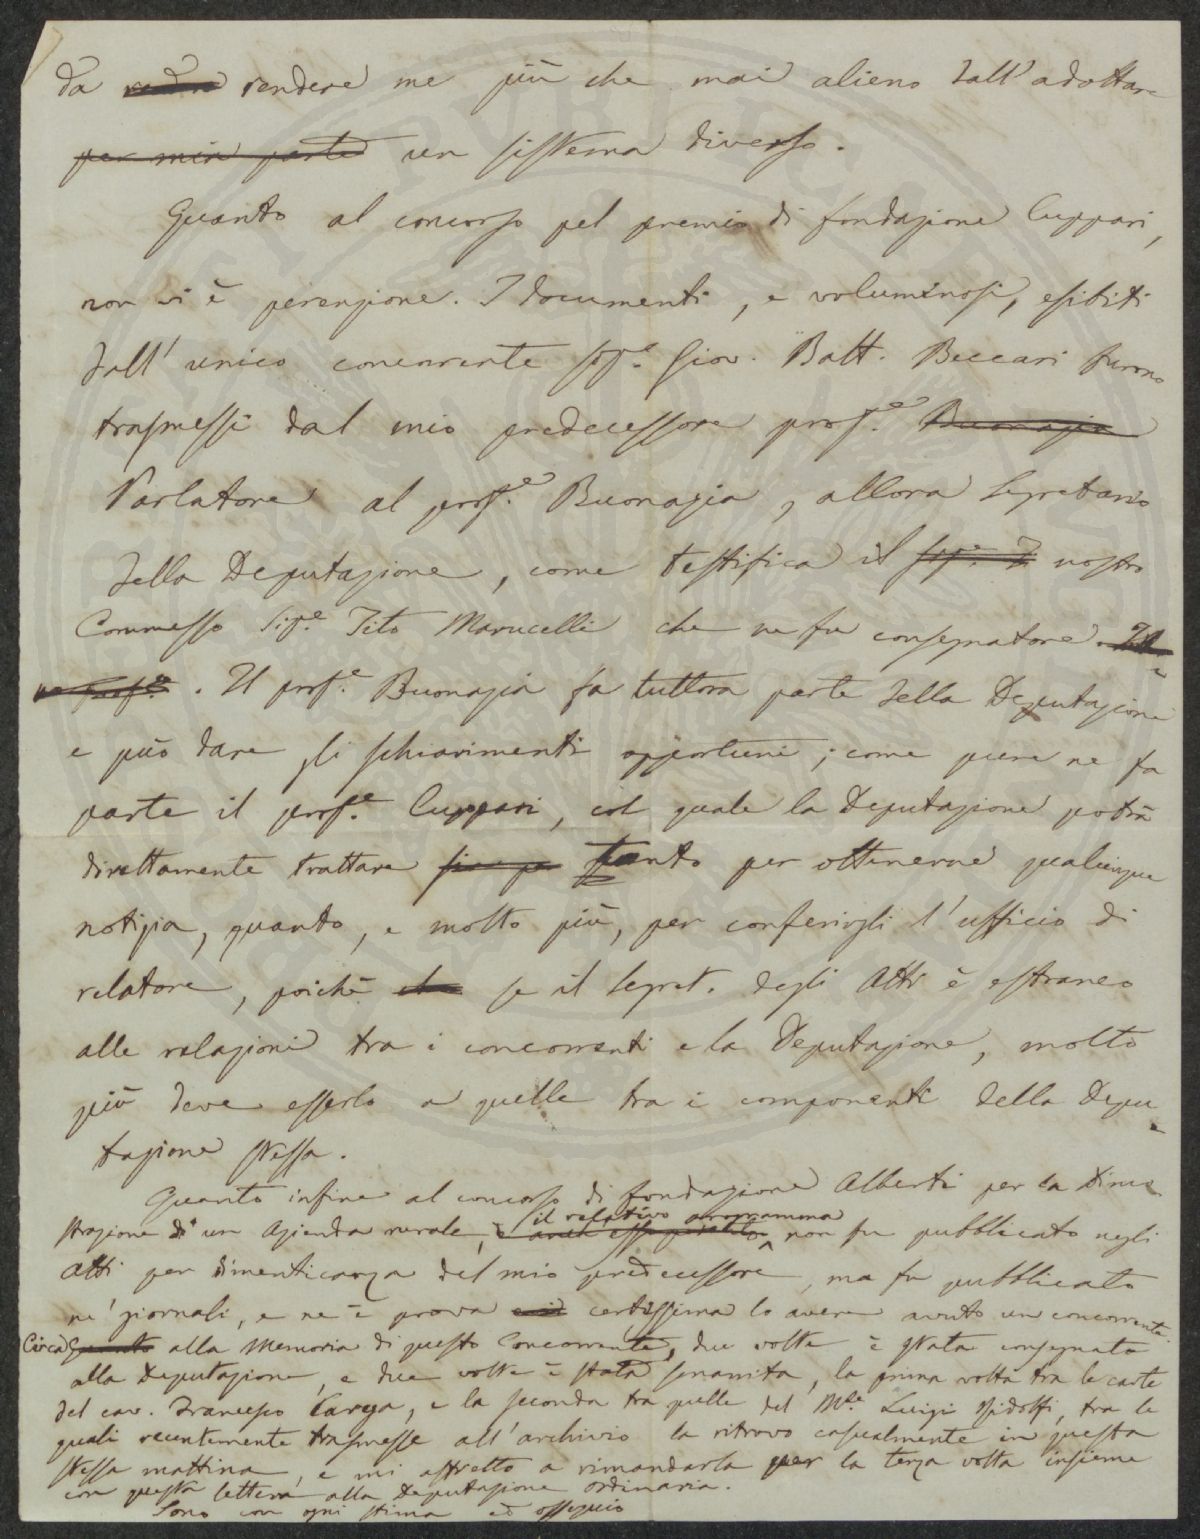 da rendere me più che mai alieno dall'adottare
per mia parte un sistema diverso.
Quanto al concorso pel premio di fondazione Cuppari,
non vi è perenzione. I documenti, e voluminosi, esibiti
dall'unico concorrente Sig.e Giov. Batt. Beccari furono
trasmessi dal mio predecessore prof.e Buonazia
Parlatore al prof.e Buonazia, allora Segretario
della Deputazione, come testifica il nostro
Commesso Sig.e Tito Marucelli che ne fu consegnatore. Il
prof.e. Il prof.e Buonazia fa tuttora parte della Deputazione
e può dare gli schiarimenti opportuni; come pure ne fa
parte il prof.e Cuppari, col quale la Deputazione potrà
direttamente trattare tanto per ottenerne qualunque
notizia, quanto, e molto più, per conferirgli l'ufficio di
relatore, poichè se il Segret. degli Atti è estraneo
alle relazioni tra i concorrenti e la Deputazione, molto
più deve esserlo a quelle tra i componenti della Depu-
tazione stessa.
Quanto infine al concorso di fondazione Alberti per la Dimo-
il relativo programma
strazione di un Azienda rurale, non fu pubblicato negli
Atti per dimenticanza del mio predecessore, ma fu pubblicato
ne' giornali, e ne è prova certissima lo avere avuto un concorrente.
Circa Quanto alla Memoria di questo Concorrente, due volte è stata consegnata
alla Deputazione, e due volte è stata smarrita, la prima volta tra le carte
del cav. Francesco Carega, e la seconda tra quelle del M.se Luigi Ridolfi, tra le
quali recentemente trasmesse all'archivio la ritrovo casualmente in questa
stessa mattina, e mi affretto a rimandarla per la terza volta insieme
con questa lettera alla Deputazione ordinaria.
Sono con ogni stima ed ossequio